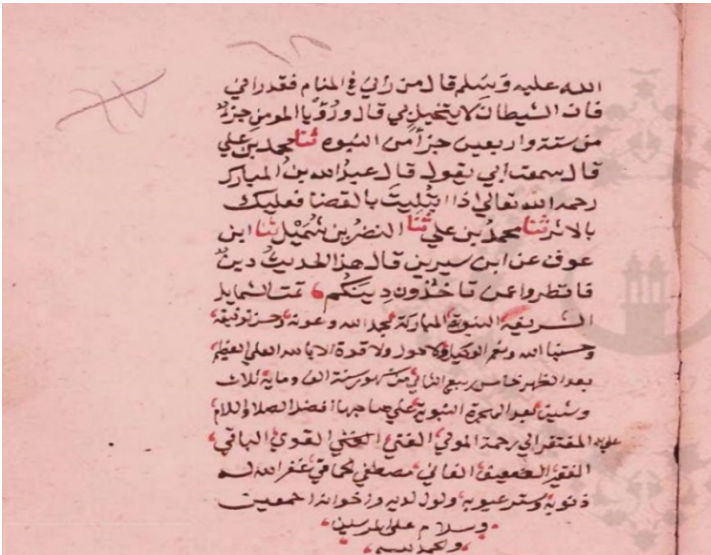 الله عليه وسلم قال من رآني في المنام فقد رآني
فان الشيطان لا يتخيل بي قال ورؤيا المومن جزء
من ستة واربعين جزأ من النبوه ثنا محمد بن علي
قال سمعت ابي يقول قال عبد الله بن المبارك
رحمه الله تعالي اذا ابتليت بالقضا فعليك
بالاثر ثنا محمد بن علي ثنا النضر بن شميل ثنا ابن
عوف عن ابن سيرين قال هذا الحديث دين
فانظروا عمن تاخذون دينكم تمت الشمايل
الشريفه النبوية المباركة بحمد الله وعونه وحسن توفيقه
وحسبنا الله ونعم الوكيل ولا حول ولا قوة الا بالله العلي العظيم
بعد الظهر خامس ربيع الثاني من شهور سنة الف وماية ثلاث
وستين بعد الهجرة النبوية علي صاحبها افضل الصلاة والسلام
علي يد المفتقر الي رحمة المولي الغني القوي الباقي
الفقير الضعيف الفاني مصطفي غفر الله له
ذنوبه وستر عيوبه ولوالديه واخوانه اجمعين
وسلام علي المرسلين
والحمد لله